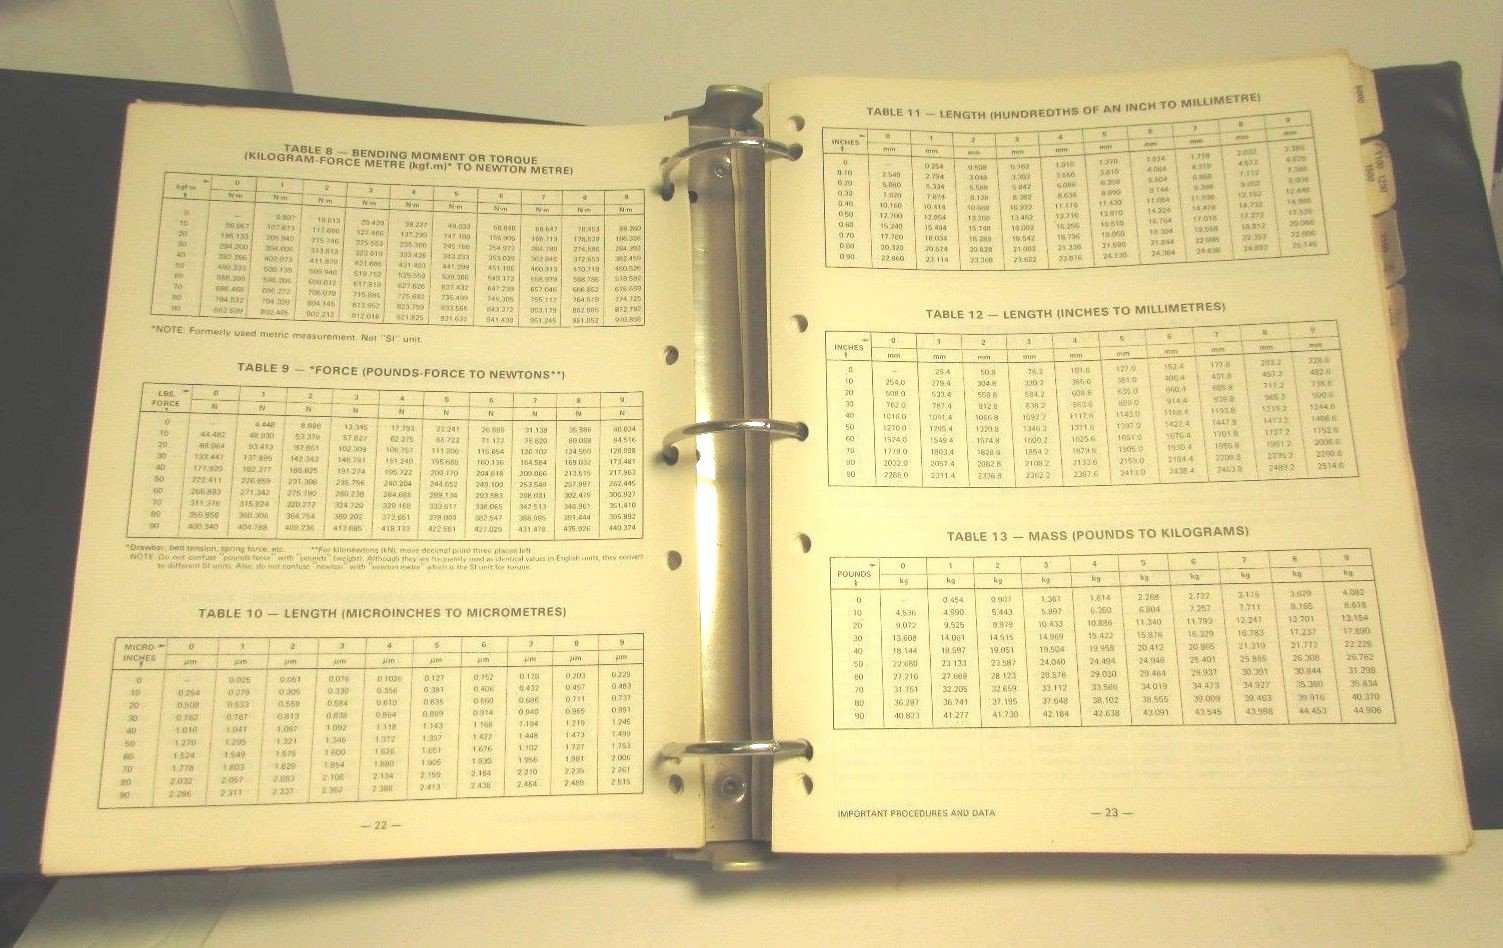 TABLE 8 — BENDING MOMENT OR TORQUE
(KILOGRAM-FORCE METRE (kgf.m)* TO NEWTON METRE)
kgf·m 0 1 2 3 4 5 6 7 8 9
N·m N·m N·m N·m N·m N·m N·m N·m N·m N·m
0 — 9.807 19.613 29.420 39.227 49.033 58.840 68.647 78.453 88.260
10 98.067 107.873 117.680 127.486 137.290 147.100 156.906 166.713 176.520 186.326
20 196.133 205.940 215.746 225.553 235.360 245.166 254.973 264.780 274.586 284.393
30 294.200 304.006 313.813 323.619 333.426 343.233 353.039 362.846 372.653 382.459
40 392.266 402.073 411.879 421.686 431.493 441.299 451.106 460.913 470.719 480.526
50 490.333 500.139 509.946 519.752 529.559 539.366 549.172 558.979 568.786 578.592
60 588.399 598.206 608.012 617.819 627.626 637.432 647.239 657.046 666.852 676.659
70 686.466 696.272 706.079 715.885 725.692 735.499 745.305 755.112 764.919 774.725
80 784.532 794.339 804.145 813.952 823.759 833.565 843.372 853.179 862.985 872.792
90 882.599 892.405 902.212 912.018 921.825 931.632 941.438 951.245 961.052 970.858
*NOTE: Formerly used metric measurement. Not "SI" unit.
TABLE 9 — *FORCE (POUNDS-FORCE TO NEWTONS**)
LBS. FORCE 0 1 2 3 4 5 6 7 8 9
N N N N N N N N N N
0 — 4.448 8.896 13.345 17.793 22.241 26.689 31.138 35.586 40.034
10 44.482 48.930 53.379 57.827 62.275 66.723 71.172 75.620 80.068 84.516
20 88.964 93.413 97.861 102.309 106.757 111.206 115.654 120.102 124.550 128.998
30 133.447 137.895 142.343 146.791 151.240 155.688 160.136 164.584 169.032 173.481
40 177.929 182.377 186.825 191.274 195.722 200.170 204.618 209.066 213.515 217.963
50 222.411 226.859 231.308 235.756 240.204 244.652 249.100 253.549 257.997 262.445
60 266.893 271.342 275.790 280.238 284.686 289.134 293.583 298.031 302.479 306.927
70 311.376 315.824 320.272 324.720 329.168 333.617 338.065 342.513 346.961 351.410
80 355.858 360.306 364.754 369.202 373.651 378.099 382.547 386.995 391.444 395.892
90 400.340 404.788 409.236 413.685 418.133 422.581 427.029 431.478 435.926 440.374
*Drawbar, belt tension, spring force, etc. **For kilonewtons (kN), move decimal point three places left.
NOTE: Do not confuse "pounds force" with "pounds" (weight). Although they are frequently used as identical values in English units, they convert
to different SI units. Also, do not confuse "newton" with "newton metre" which is the SI unit for torque.
TABLE 10 — LENGTH (MICROINCHES TO MICROMETRES)
MICRO-INCHES 0 1 2 3 4 5 6 7 8 9
μm μm μm μm μm μm μm μm μm μm
0 — 0.025 0.051 0.076 0.1028 0.127 0.152 0.203 0.229
10 0.254 0.279 0.305 0.330 0.356 0.381 0.406 0.432 0.457 0.483
20 0.508 0.533 0.559 0.584 0.610 0.635 0.660 0.686 0.711 0.737
30 0.762 0.787 0.813 0.838 0.864 0.889 0.914 0.940 0.965 0.991
40 1.016 1.041 1.067 1.092 1.118 1.143 1.168 1.194 1.219 1.245
50 1.270 1.295 1.321 1.346 1.372 1.397 1.422 1.448 1.473 1.499
60 1.524 1.549 1.575 1.600 1.626 1.651 1.676 1.702 1.727 1.753
70 1.778 1.803 1.829 1.854 1.880 1.905 1.930 1.956 1.981 2.006
80 2.032 2.057 2.083 2.108 2.134 2.159 2.184 2.210 2.235 2.261
90 2.286 2.311 2.337 2.362 2.388 2.413 2.438 2.464 2.489 2.515
— 22 —
TABLE 11 — LENGTH (HUNDREDTHS OF AN INCH TO MILLIMETRE)
INCHES 0 1 2 3 4 5 6 7 8 9
mm mm mm mm mm mm mm mm mm mm
0 — 0.254 0.508 0.762 1.016 1.270 1.524 1.778 2.032 2.286
0.10 2.540 2.794 3.048 3.302 3.556 3.810 4.064 4.318 4.572 4.826
0.20 5.080 5.334 5.588 5.842 6.096 6.350 6.604 6.858 7.112 7.366
0.30 7.620 7.874 8.128 8.382 8.636 8.890 9.144 9.398 9.652 9.906
0.40 10.160 10.414 10.668 10.922 11.176 11.430 11.684 11.938 12.192 12.446
0.50 12.700 12.954 13.208 13.462 13.716 13.970 14.224 14.478 14.732 14.986
0.60 15.240 15.494 15.748 16.002 16.256 16.510 16.764 17.018 17.272 17.526
0.70 17.780 18.034 18.288 18.542 18.796 19.050 19.304 19.558 19.812 20.066
0.80 20.320 20.574 20.828 21.082 21.336 21.590 21.844 22.098 22.352 22.606
0.90 22.860 23.114 23.368 23.622 23.876 24.130 24.384 24.638 24.892 25.146
TABLE 12 — LENGTH (INCHES TO MILLIMETRES)
INCHES 0 1 2 3 4 5 6 7 8 9
mm mm mm mm mm mm mm mm mm mm
0 — 25.4 50.8 76.2 101.6 127.0 152.4 177.8 203.2 228.6
10 254.0 279.4 304.8 330.2 355.6 381.0 406.4 431.8 457.2 482.6
20 508.0 533.4 558.8 584.2 609.6 635.0 660.4 685.8 711.2 736.6
30 762.0 787.4 812.8 838.2 863.6 889.0 914.4 939.8 965.2 990.6
40 1016.0 1041.4 1066.8 1092.2 1117.6 1143.0 1168.4 1193.8 1219.2 1244.6
50 1270.0 1295.4 1320.8 1346.2 1371.6 1397.0 1422.4 1447.8 1473.2 1498.6
60 1524.0 1549.4 1574.8 1600.2 1625.6 1651.0 1676.4 1701.8 1727.2 1752.6
70 1778.0 1803.4 1828.8 1854.2 1879.6 1905.0 1930.4 1955.8 1981.2 2006.6
80 2032.0 2057.4 2082.8 2108.2 2133.6 2159.0 2184.4 2209.8 2235.2 2260.6
90 2286.0 2311.4 2336.8 2362.2 2387.6 2413.0 2438.4 2463.8 2489.2 2514.6
TABLE 13 — MASS (POUNDS TO KILOGRAMS)
POUNDS 0 1 2 3 4 5 6 7 8 9
kg kg kg kg kg kg kg kg kg kg
0 — 0.454 0.907 1.361 1.814 2.268 2.722 3.175 3.629 4.082
10 4.536 4.990 5.443 5.897 6.350 6.804 7.257 7.711 8.165 8.618
20 9.072 9.525 9.979 10.433 10.886 11.340 11.793 12.247 12.701 13.154
30 13.608 14.061 14.515 14.969 15.422 15.876 16.329 16.783 17.237 17.690
40 18.144 18.597 19.051 19.504 19.958 20.412 20.865 21.319 21.772 22.226
50 22.680 23.133 23.587 24.040 24.494 24.948 25.401 25.855 26.308 26.762
60 27.216 27.669 28.123 28.576 29.030 29.484 29.937 30.391 30.844 31.298
70 31.751 32.205 32.659 33.112 33.566 34.019 34.473 34.927 35.380 35.834
80 36.287 36.741 37.195 37.648 38.102 38.555 39.009 39.463 39.916 40.370
90 40.823 41.277 41.730 42.184 42.638 43.091 43.545 43.998 44.453 44.906
IMPORTANT PROCEDURES AND DATA — 23 —